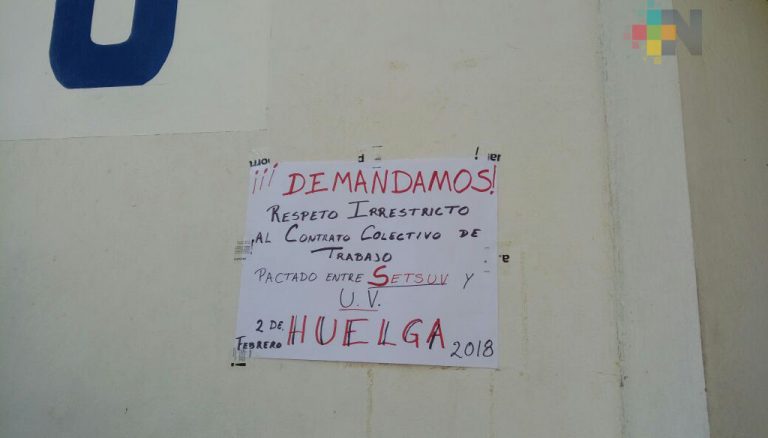 U
N
¡¡¡ DEMANDAMOS!
RESPETO IRRESTRICTO
AL CONTRATO COLECTIVO DE
TRABAJO
PACTADO ENTRE SETSUV Y
U.V.
2 DE FEBRERO HUELGA 2018